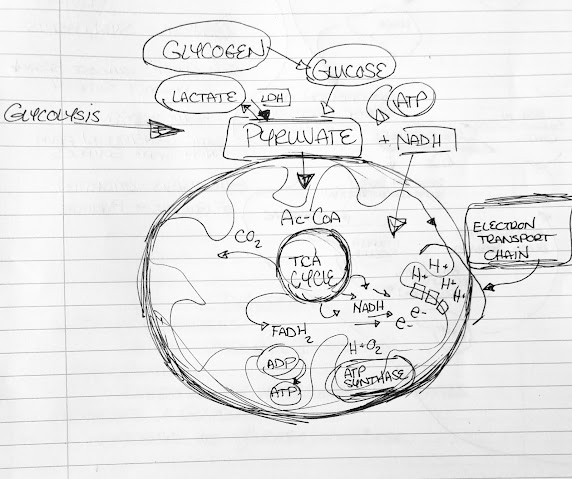 GLYCOGEN
GLUCOSE
LACTATE
LDH
ATP
GLYCOLYSIS
PYRUVATE
+ NADH
AC-COA
ELECTRON
TRANSPORT
CHAIN
CO2
TCA
CYCLE
H+
H+
H+
H+
NADH
e-
e-
FADH2
H+O2
ADP
ATP
ATP
SYNTHASE